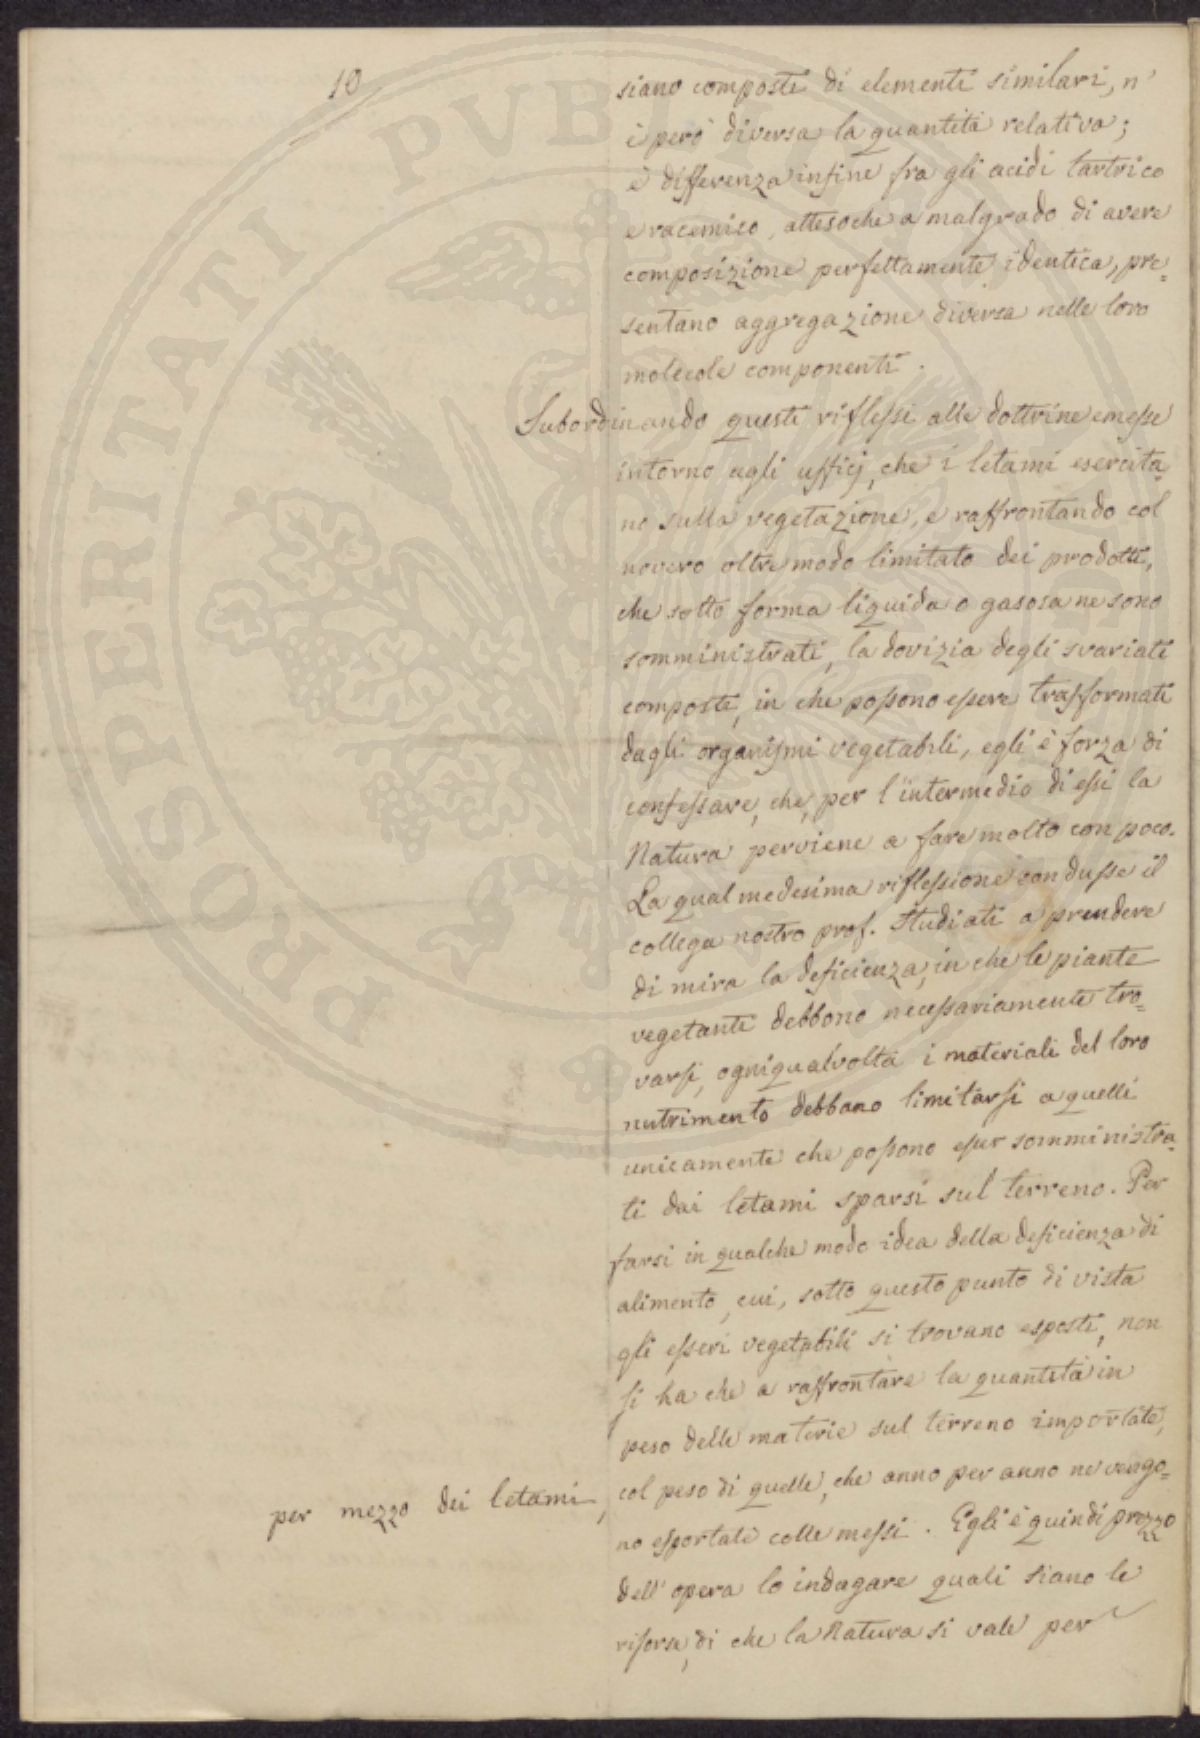 10
siano composti di elementi similari, n'
è però diversa la quantità relativa;
e differenza infine fra gli acidi tartrico
e racemico, attesoche a malgrado di avere
composizione perfettamente identica, pre=
sentano aggregazione diversa nelle loro
molecole componenti.
Subordinando questi riflessi alle dottrine emesse
intorno agli ufficj, che i letami esercita=
no sulla vegetazione, e raffrontando col
novero oltremodo limitato dei prodotti,
che sotto forma liquida o gasosa ne sono
somministrati, la dovizia degli svariati
composti, in che possono essere trasformati
dagli organismi vegetabili, egli è forza di
confessare, che, per l'intermedio di essi la
Natura perviene a fare molto con poco.
La qual medesima riflessione condusse il
collega nostro prof. Studiati a prendere
di mira la deficienza, in che le piante
vegetanti debbono necessariamente tro=
varsi, ogniqualvolta i materiali del loro
nutrimento debbano limitarsi a quelli
unicamente che possono esser somministra=
ti dai letami sparsi sul terreno. Per
farsi in qualche modo idea della deficienza di
alimento, cui, sotto questo punto di vista
gli esseri vegetabili si trovano esposti, non
si ha che a raffrontare la quantità in
peso delle materie sul terreno importate,
per mezzo dei letami,
col peso di quelle, che anno per anno ne vengo=
no esportate colle messi. Egli è quindi prezzo
dell'opera lo indagare quali siano le
risorse, di che la Natura si vale per
PROSPERITATI PVBLICAE